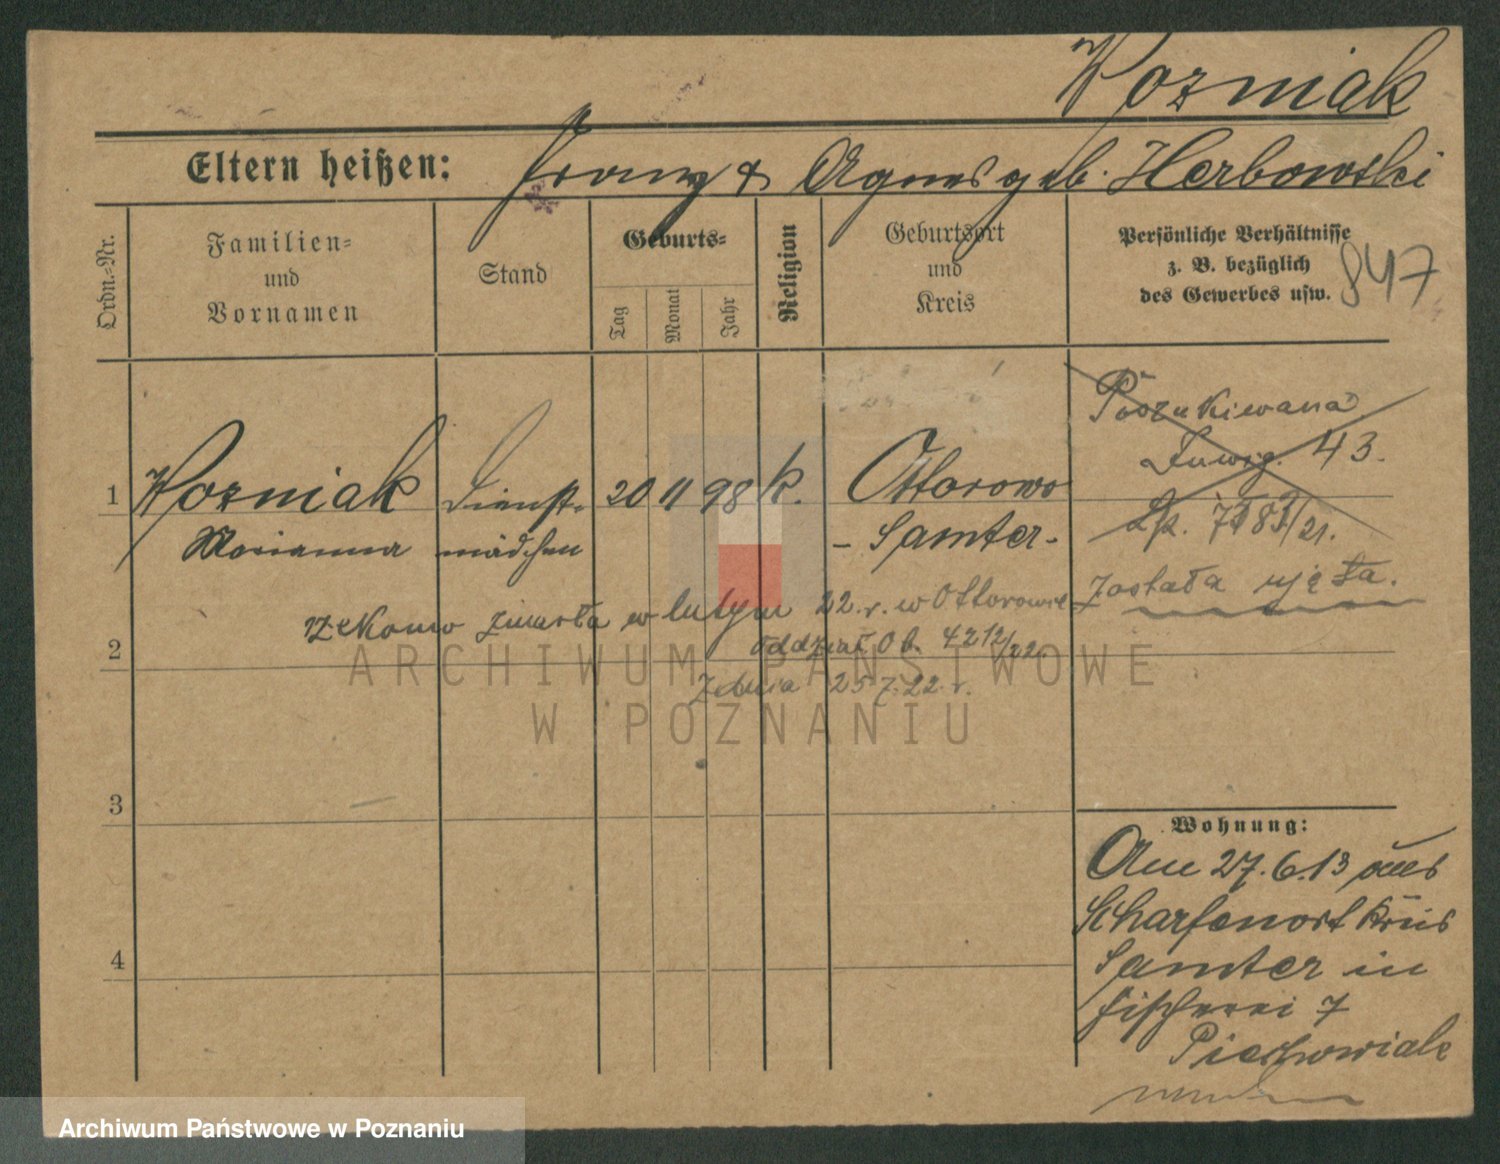 Wozniak
Eltern heißen: Franz & Agnes geb. Herbowski
Ordn.-Nr.
Familien-
und
Vornamen
Stand
Geburts-
Tag
Monat
Jahr
Religion
Geburtsort
und
Kreis
Persönliche Verhältnisse
z. B. bezüglich
des Gewerbes usw.
847
Poszukiwana
43.
1 Wozniak Dienst- 20 11 98 k. Ottorowo
Marianna mädchen - Samter -
/21.
Została ujęta.
rzekomo zmarła w lutym 22. r. w Ottorowie
2 oddział Ob. 4212/22
Zebnia 25.7.22. r.
3
4
Wohnung:
Am 27.6.13 aus
Scharfenort Kreis
Samter in
Fischerei 7
Piechowiak
ARCHIWUM PAŃSTWOWE
W POZNANIU
Archiwum Państwowe w Poznaniu